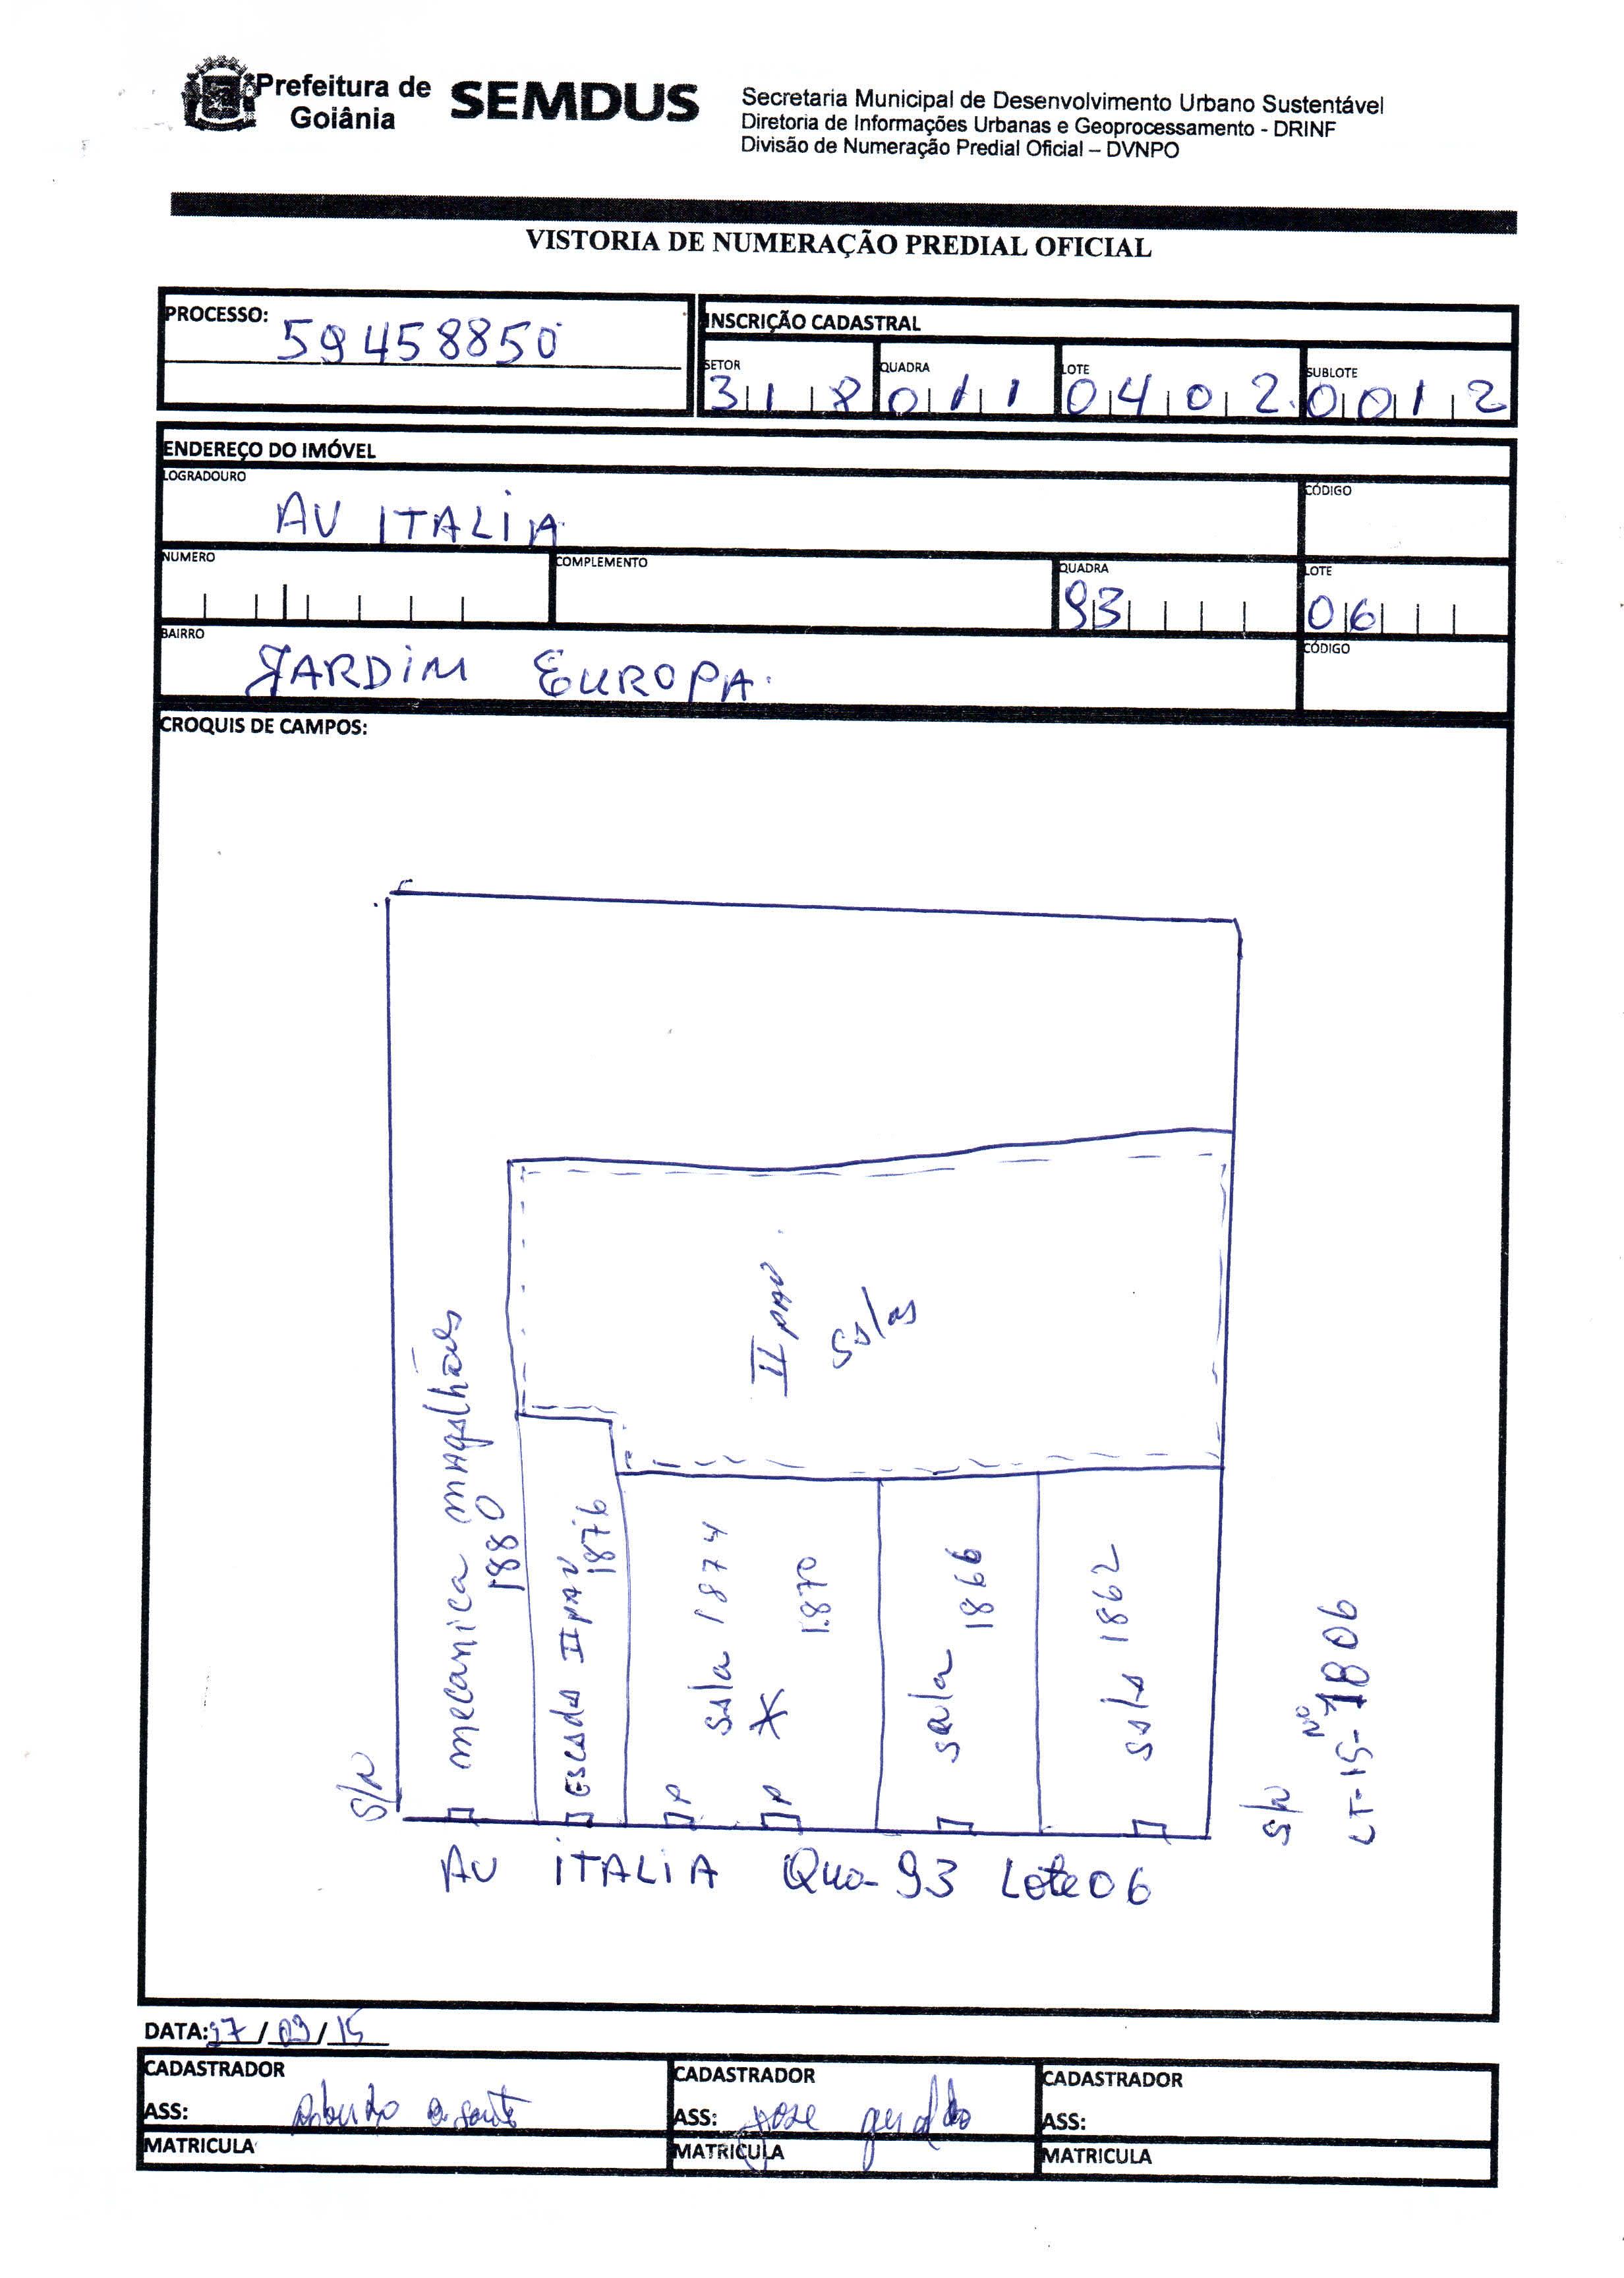 Prefeitura de
Goiânia
SEMDUS
Secretaria Municipal de Desenvolvimento Urbano Sustentável
Diretoria de Informações Urbanas e Geoprocessamento - DRINF
Divisão de Numeração Predial Oficial – DVNPO
VISTORIA DE NUMERAÇÃO PREDIAL OFICIAL
PROCESSO: 59458850
INSCRIÇÃO CADASTRAL
SETOR QUADRA LOTE SUBLOTE
318 011 0402 0012
ENDEREÇO DO IMÓVEL
LOGRADOURO CÓDIGO
AV ITALIA
NUMERO COMPLEMENTO QUADRA LOTE
93 06
BAIRRO CÓDIGO
JARDIM EUROPA
CROQUIS DE CAMPOS:
S/N
mecanica magalhães
1880
Escada II pav
1876
II pav
Salas
sala 1874
1870
P
P
sala 1866
sala 1862
S/N
Nº
LT-15-1806
AV ITALIA Qua-93 Lote 06
DATA: 27/03/15
CADASTRADOR CADASTRADOR CADASTRADOR
ASS: ASS: jose geraldo ASS:
MATRICULA MATRICULA MATRICULA